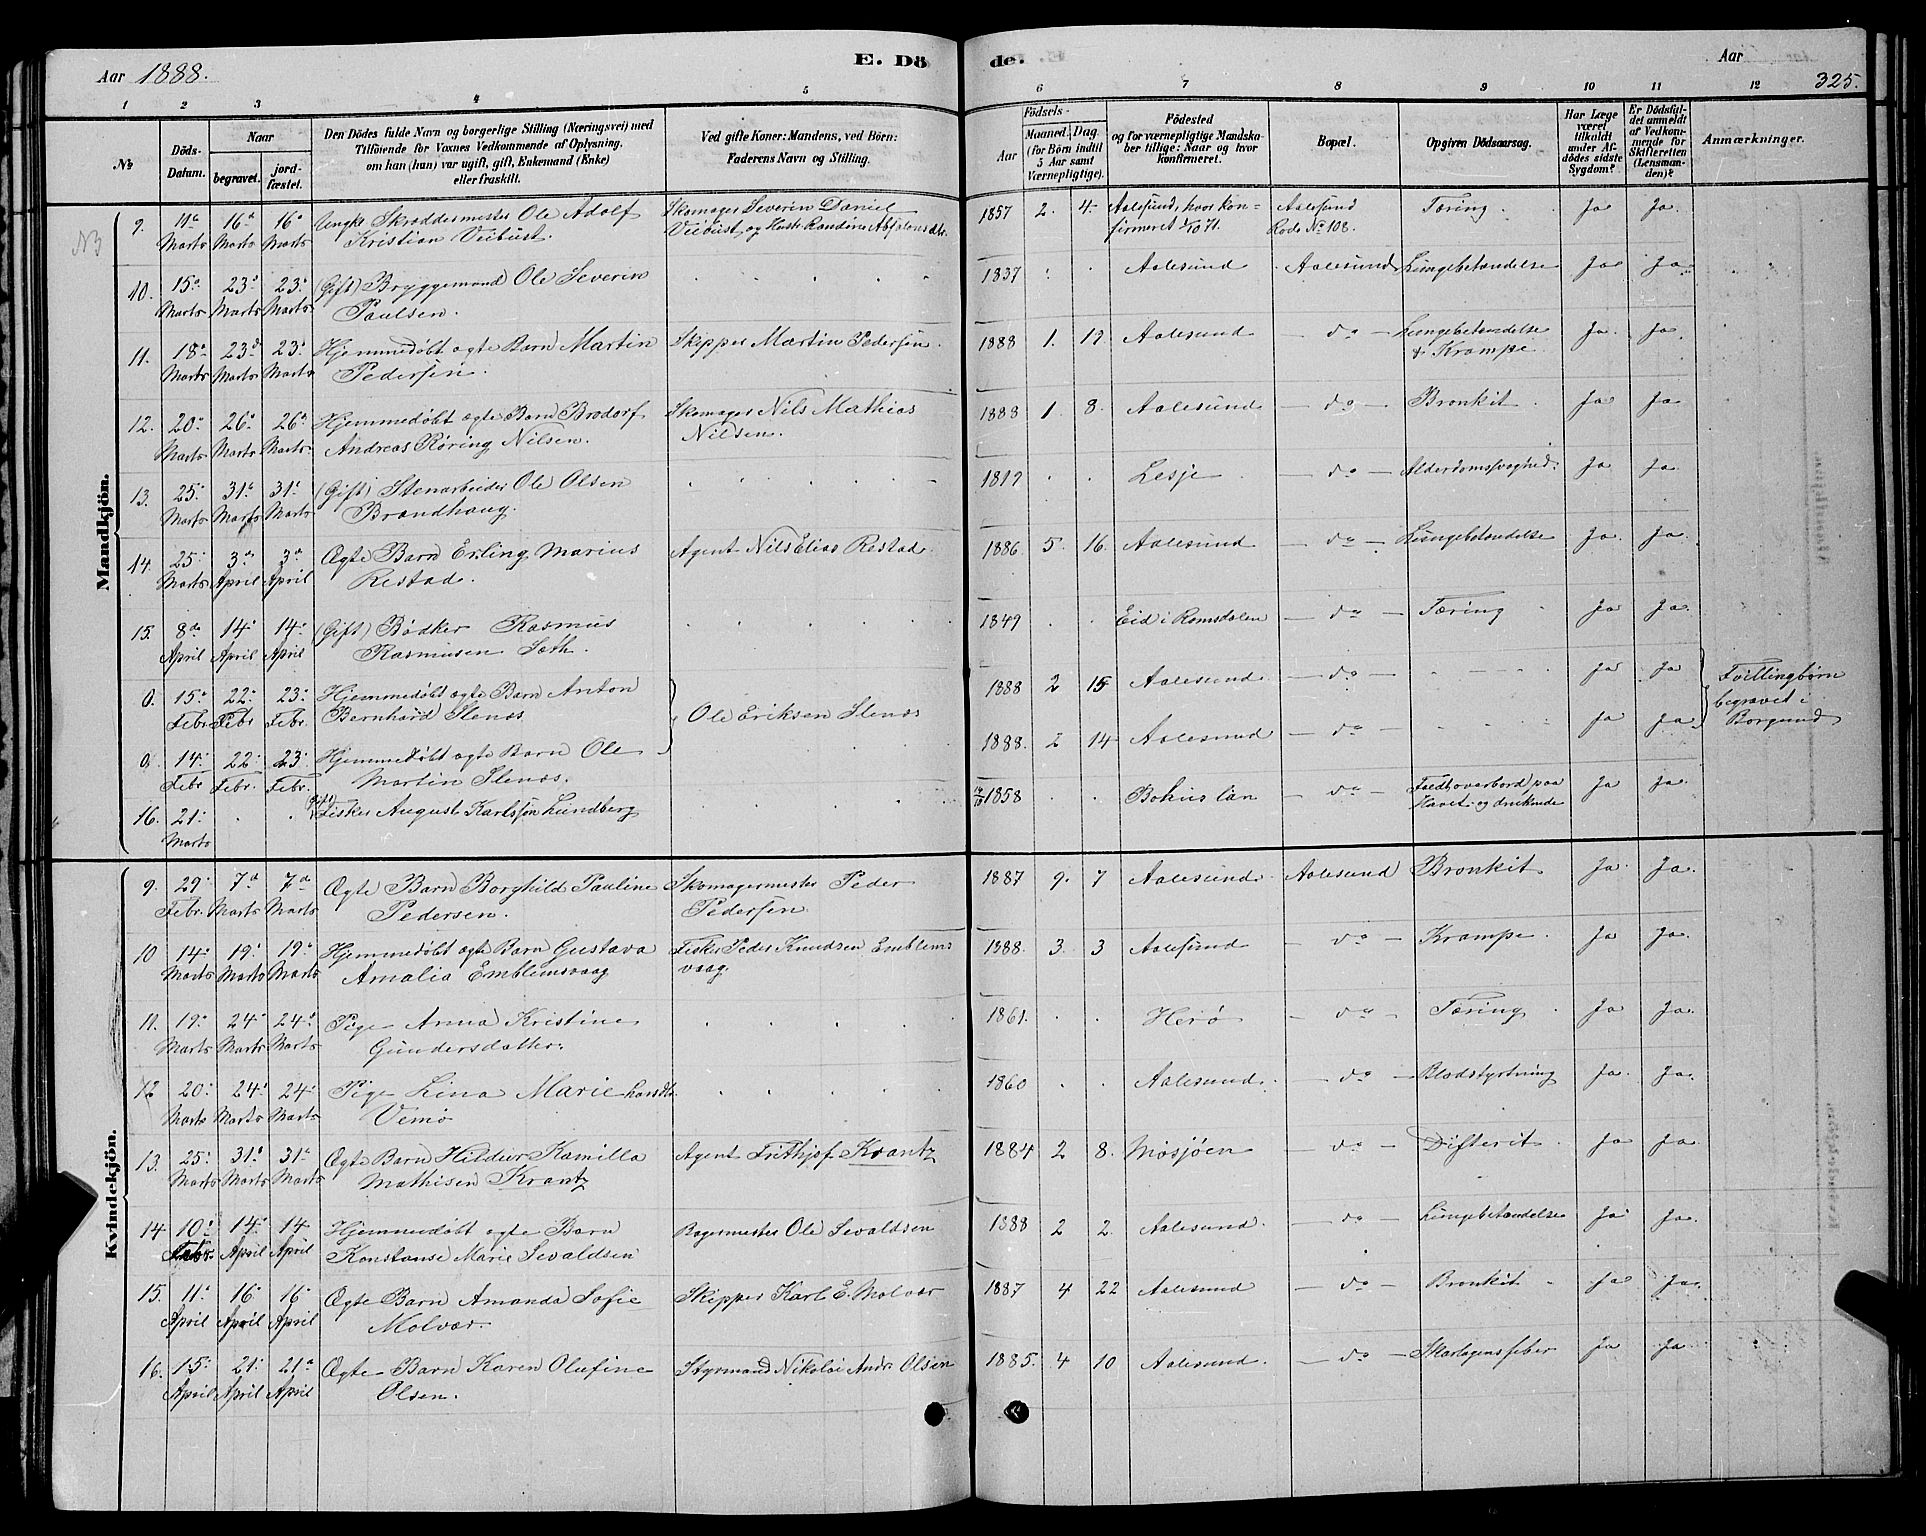 Aar 1888.
E. Dö
de.
Aar
325.
1 2 3 4 5
6 7 8 9 10 11 12
№
Döds-
Datum.
Naar
begravet.
jord-
fæstet.
Den Dödes fulde Navn og borgerlige Stilling (Næringsvei) med
Tilföiende for Voxnes Vedkommende af Oplysning,
om han (hun) var ugift, gift, Enkemand (Enke)
eller fraskilt.
Ved gifte Koner: Mandens, ved Börn:
Faderens Navn og Stilling.
Födsels-
Aar
Maaned. Dag
(for Börn indtil
5 Aar samt
Værnepligtige).
Födested
og for værnepligtige Mandska-
ber tillige: Naar og hvor
konfirmeret.
Bopæl.
Opgiven Dödsaarsag.
Har Læge
været
tilkaldt
under Af-
dödes sidste
Sygdom?
Er Dödsfal-
det anmeldt
af Vedkom-
mende for
Skifteretten
(Lensman-
den)?
Anmærkninger.
Mandkjön.
9. 11te Marts 16de Marts 16de Marts Ungk. Skræddermester Ole Adolf Skomager Severin Daniel 1857 2. 4. Aalesund, hvor kon- Aalesund Tæring. Ja Ja.
Kristian Viibust. Viibust og Hustr. Randine Absalonsdtr. firmeret 1/10 71. Rode No 108.
10. 15de Marts 23de Marts 23de Marts (Gift) Bryggemand Ole Severin 1837 Aalesund Aalesund Lungebetændelse Ja Ja.
Paulsen.
11. 18de Marts 23de Marts 23de Marts Hjemmedøbt ægte Barn Martin Skipper Martin Pedersen. 1888 1. 19 Aalesund — do — Lungebetændelse Ja. Ja
Pedersen. & Krampe.
12. 20de Marts 26de Marts 26de Marts Hjemmedøbt ægte Barn Brodorf Skomager Nils Mathias 1888 1. 8. Aalesund — do — Bronkit. Ja Ja
Andreas Røring Nilsen. Nilsen.
13. 25de Marts 31te Marts 31te Marts (Gift) Stenarbeider Ole Olsen 1819 Lesje — do — Alderdomssvaghed. Ja Ja.
Brandhaug.
14. 25de Marts 3die April 3die April Ægte Barn Erling Marius Agent Nils Elias Restad. 1886 5. 16. Aalesund — do — Lungebetændelse Ja. Ja.
Restad.
15. 8de April 14de April 14de April (Gift) Bødker Rasmus 1849 Eid i Romsdalen — do — Tæring Ja Ja.
Rasmusen Sæth.
0. 15de Febr. 22de Febr. 23de Febr. Hjemmedøbt ægte Barn Anton 1888 2 15 Aalesund — do — Ja Ja Tvillingbørn
Bernhard Slenæs Ole Eriksen Slenæs begravet i
Borgund
0. 14de Febr. 22de Febr. 23de Febr. Hjemmedøbt ægte Barn Ole 1888. 2 14 Aalesund — do — Ja Ja.
Martin Slenæs.
16. 21de Marts (gift) Fisker August Karlsson Lundberg 1858 Bohus län — do — Faldt overbord paa Ja Ja.
Havet og druknede
Kvindekjön.
9. 29de Febr. 7de Marts 7de Marts Ægte Barn Borghild Pauline Skomagermester Peder 1887 9. 7 Aalesund. Aalesund Bronkit Ja. Ja.
Pedersen. Pedersen.
10 14de Marts 19de Marts 19de Marts Hjemmedøbt ægte Barn Gustava Fisker Peder Knudsen Emblems 1888. 3. 3 Aalesund — do — Krampe. Ja Ja.
Amalia Emblemsvaag vaag.
11. 19de Marts 24de Marts 24de Marts Pige Anna Kristine 1861. Herø — do — Tæring Ja Ja.
Gundersdatter.
12 20de Marts 24de Marts 24de Marts Pige Lina Marie Hansdtr. 1860 Aalesund. — do — Blodstyrtning Ja. Ja.
Vemø
13. 25de Marts 31te Marts 31te Marts Ægte Barn Hildur Kamilla Agent Frithjof Krantz 1884 2 8. Mosjøen — do — Difterit. Ja Ja
Mathisen Krantz
14. 10de Febr. 14de April 14 April Hjemmedøbt ægte Barn Bagermester Ole Sevaldsen 1888 2 2. Aalesund. — do — Lungebetændelse Ja Ja.
Konstanse Marie Sevaldsen
15. 11te April 16 April 16 April Ægte Barn Amanda Sofie Skipper Karl E. Molvær 1887 4 22 Aalesund — do — Bronkit Ja Ja.
Molvær.
16. 15de April 21de April 21de April Ægte Barn Karen Olufine Styrmand Nikolai Andr. Olsen 1885. 4 10 Aalesund. — do — Skarlagensfeber Ja Ja.
Olsen.